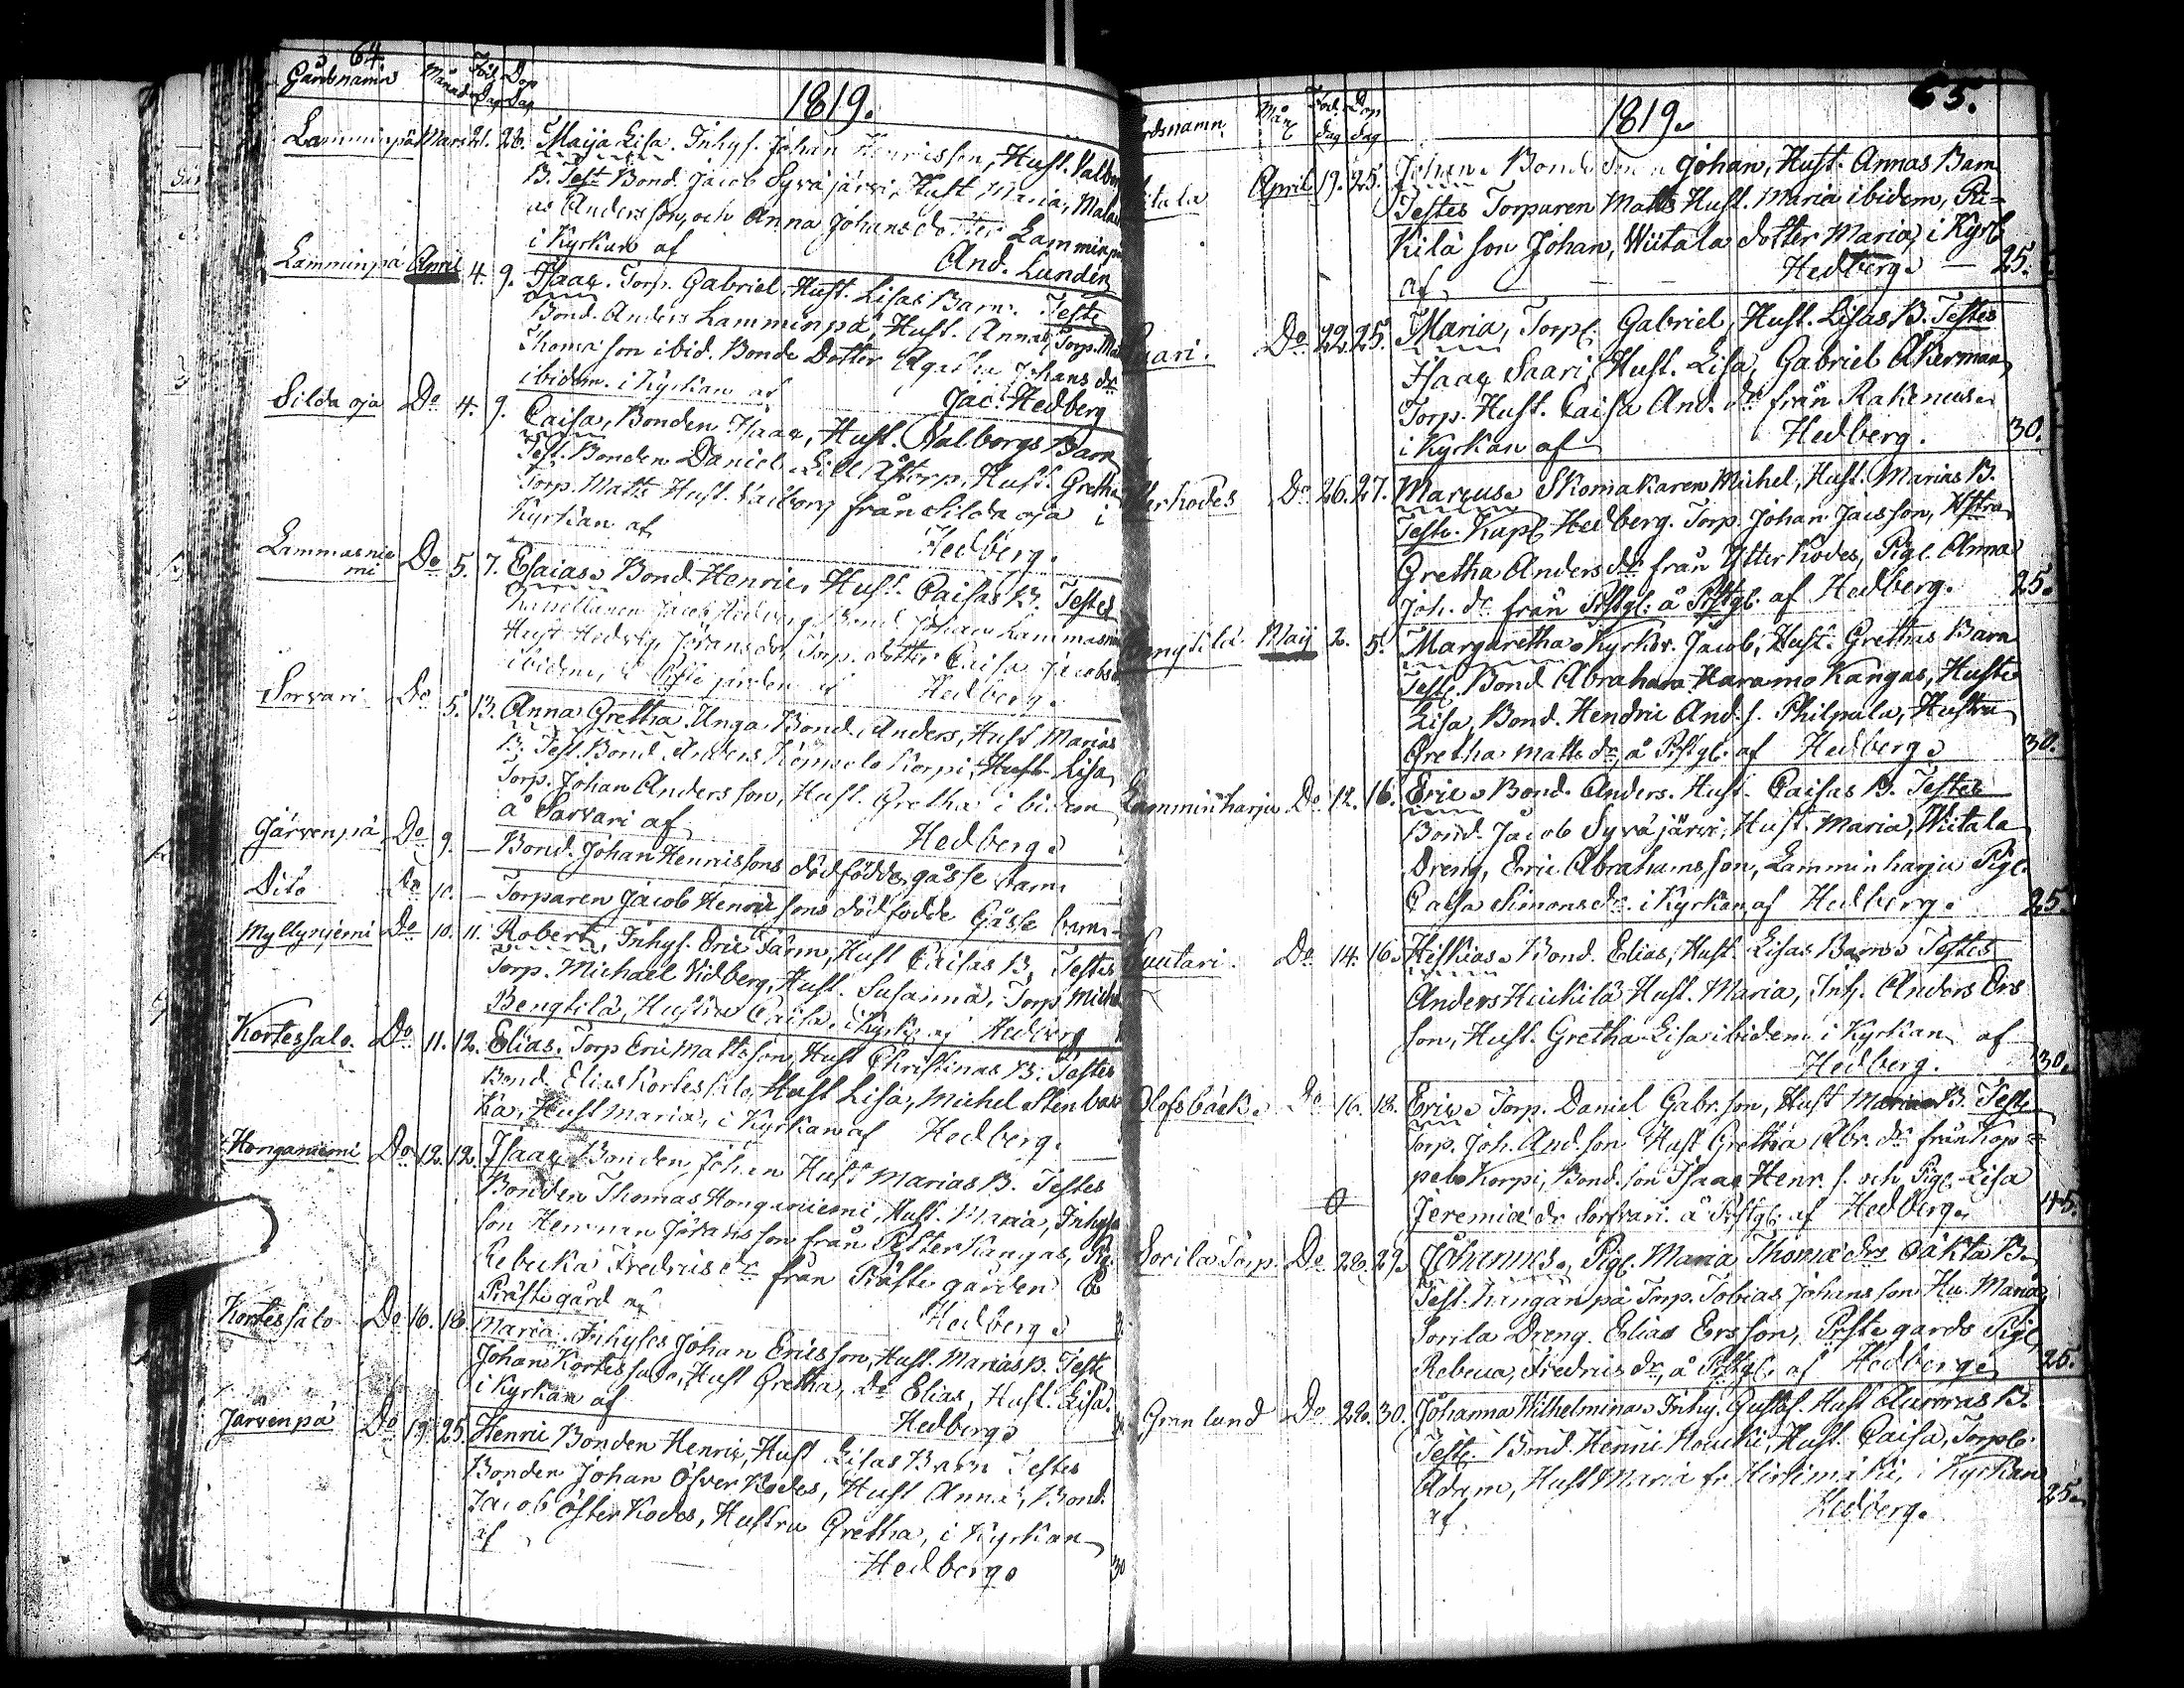 64.
Gårdsnamn Månad Föd. Dag Dop Dag 1819.
Lamminpä Mars 21. 26. Maija Lisa. Inhys. Johan Henricsson, Hust. Valbor
B. Test Bond. Jacob Syväjärvi, Hust Maria,
as Andersson, och Anna Johansdotter Lamminpä
i Kyrkan af And. Lundin
Lamminpä April 4. 9. Isaac. Torp. Gabriel, Hust. Lisas Barn. Teste
Bond. Anders Lamminpä, Hust. Annas, Torp.
Thomæ son ibid. Bonde Dotter Agatha Johans dr
ibidem. i Kyrkan af Jac. Hedberg
Silda oja Do 4. 9. Caisa, Bonden Isaac, Hust. Valborgs Barn
Test. Bonden Daniel Lill Åstorp, Hust. Gretha
Torp. Matts Hust. Valborg från Silda oja i
Kyrkan af Hedberg.
Lammasnie
mi Do 5. 7. Esaias. Bond. Henric, Hust. Caisas B. Testes
Jacob Hedberg Bond Johan Lammasni
Hust Hedvig Jörans dr, Torp. dotter Caisa Jacobs
ibidem, af Hedberg.
Sorvari Do 5. 13. Anna Gretha. Unga Bond. Anders, Hust Marias
B. Test. Bond. Anders Korpi, Hust Lisa,
Torp. Johan Andersson, Hust. Gretha ibidem
å Sarvari af Hedberg.
Järvenpä Do 9. — Bond. Johan Henricssons dödfödde gåsse barn
Dito Do 10. — Torparen Jacob Henricsons dödfodde Gåsse barn
Myllyniemi Do 10. 11. Robert, Inhys. Eric Färm, Hust Caisas B. Testes
Torp. Michael Vidberg, Hust. Susanna, Torp. Michel
Bengtilä, Hustru Caisa, i Kyrk af Hedberg
Kortessalo. Do 11. 12. Elias. Torp Eric Mattsson, Hust Christinas B. Testes
Bond. Elias Kortessalo, Hust Lisa, Michel Stenbac
ka, Hust Maria, i Kyrkan af Hedberg.
Honganiemi Do 12. 12. Isaac Bonden Johan Hust Marias B. Testes
Bonden Thomas Honganiemi, Hust. Maria, Inhyse
son Herman Jöransson från PetterKangas, Pig.
Rebecka Fredrics dr från Präste gården å
Präste gård af Hedberg.
Kortessalo Do 16. 18. Maria. Inhyses Johan Ericsson, Hust. Marias B. Teste
Johan Kortessalo, Hust Gretha, Do Elias, Hust. Lisa.
i Kyrkan af Hedberg.
Järvenpä Do 19. 25. Henric Bonden Henric, Hust Lisas Barn Testes
Bonden Johan ÖfverKodes, Hust Anna, Bond.
Jacob ÖfterKodes, Hustru Gretha, i Kyrkan
af
Hedberg. 30
65.
rdsnamn Mån Föd. dag Dop dag 1819.
itala April 19. 25. Johan. Bond Johan, Hust. Annas Barn
Testes Torparen Matts Hust. Maria ibidem, Pi-
Kilä son Johan, Wiitala dotter Maria, i Kyrk
af — — — Hedberg. — 25.
aari. Do 22. 25. Maria, Torp. Gabriel, Hust. Lisas B. Testes
Isaac Saari, Hust. Lisa, Gabriel Åkerman
Torp. Hust. Caisa And. dr från Rakenus.
i Kyrkan af Hedberg. 30.
terkodes Do 26. 27. Marcus. Skomakaren Michel, Hust. Marias B.
Teste. Kapl Hedberg. Torp. Johan Jacsson, Hstra
Gretha Anders dr från YtterKodes, Pigl. Anna
Joh. dr från Prstgl. å Prstgl. af Hedberg. 25.
engtilä Maij 2. 5. Margaretha. Kyrkov. Jacob, Hust. Grethas Barn
Teste. Bond Abraham Haramo Kangas, Hust.
Lisa, Bond. Hendric And. s. Philpula, Hustru
Gretha Matts dr, å Prstgl. af Hedberg. 30.
Lamminharju Do 12. 16. Eric. Bond. Anders. Hust. Caisas B. Testes
Bond. Jacob Syväjärvi, Hust. Maria, Wiitala
Dreng, Eric Abrahamsson, Lamminharju Pigl.
Caisa Simons dr. i Kyrkan af Hedberg. 25.
uutari. Do 14. 16. Hiskias. Bond. Elias, Hust. Lisas Barn. Testes
Anders Huhilä Hust. Maria, Inh. Anders Ers
son, Hust. Gretha Lisa ibidem i Kyrkan af
Hedberg. 30.
Olofsbäck. Do 16. 18. Eric. Torp. Daniel Gabr. son, Hust Marias B. Teste
Torp. Joh. And. son Hust Gretha Abr. dr från Kop=
pelo Korpi, Bond. son Isaac Henr. s. och Pigl. Lisa
Jeremiæ dr Sorvari. å Prstgl. af Hedberg. 45.
Sorila Torp. Do 28. 29. Johannes. Pigl. Maria Thomæ drs Oäkta B.
Test. Kangan pä Torp. Tobias Johansson Hu. Maria
Sorila Dreng. Elias Ersson, Prstegards Pigl.
Rebecca Fredrics dr, å Prstgl. af Hedberg. 25.
Granlund Do 28. 30. Johanna Wilhelmina. Inhy. Gustaf. Hust Auroras B.
Teste. Bond. Henric Houcki, Hust. Caisa, Torpl.
Adam, Hust Maria fr. Hirsimäki, i Kyrkan
af Hedberg. 25.